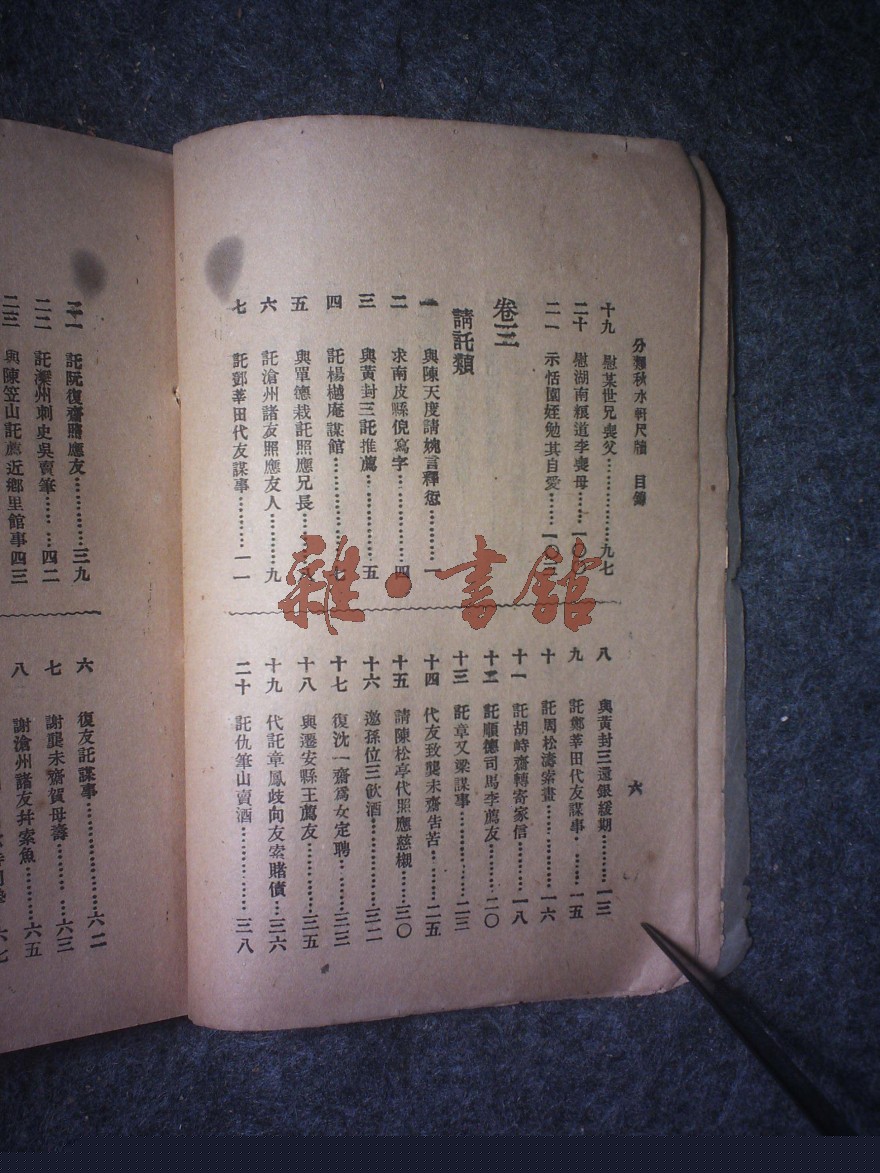 分類秋水軒尺牘　目錄
六
十九　慰某世兄喪父………………九七
二十　慰湖南糧道李喪母………一〇〇
二一　示恬園姪勉其自愛………一〇三
卷三
請託類
一　與陳天度請婉言釋愆…………一
二　求南皮縣倪寫字………………四
三　與黃封三託推薦………………五
四　託楊樾庵謀館…………………七
五　與單德栽託照應兄長…………八
六　託滄州諸友照應友人…………九
七　託鄧莘田代友謀事…………一一
八　與黃封三還銀緩期…………一三
九　託鄭莘田代友謀事…………一五
十　託周松濤索畫………………一六
十一　託胡峙齋轉寄家信………一八
十二　託順德司馬李薦友………二〇
十三　託章又梁謀事……………二三
十四　代友致龔未齋告苦………二五
十五　請陳松亭代照應慈櫬……三〇
十六　邀孫位三飲酒……………三二
十七　復沈一齋爲女定聘………三三
十八　與遷安縣王薦友…………三五
十九　代託章鳳歧向友索賭債…三六
二十　託仇笙山賣酒……………三八
二一　託阮復齋照應友…………三九
二二　託灤州刺史吳賣筆………四二
二三　與陳笠山託薦近鄉里館事四三
六　復友託謀事…………………六二
七　謝龔未齋賀母壽……………六三
八　謝滄州諸友幷索魚…………六五
六七
雜·書館